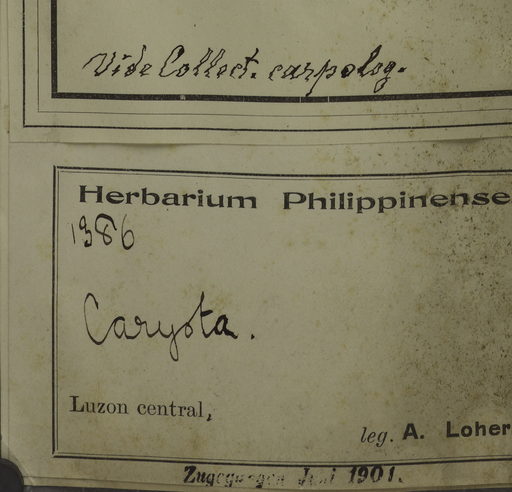 Vide Collect. carpolog.
Herbarium Philippinense
1386
Caryota.
Luzon central,
leg. A. Loher
Zugegangen Juni 1901.